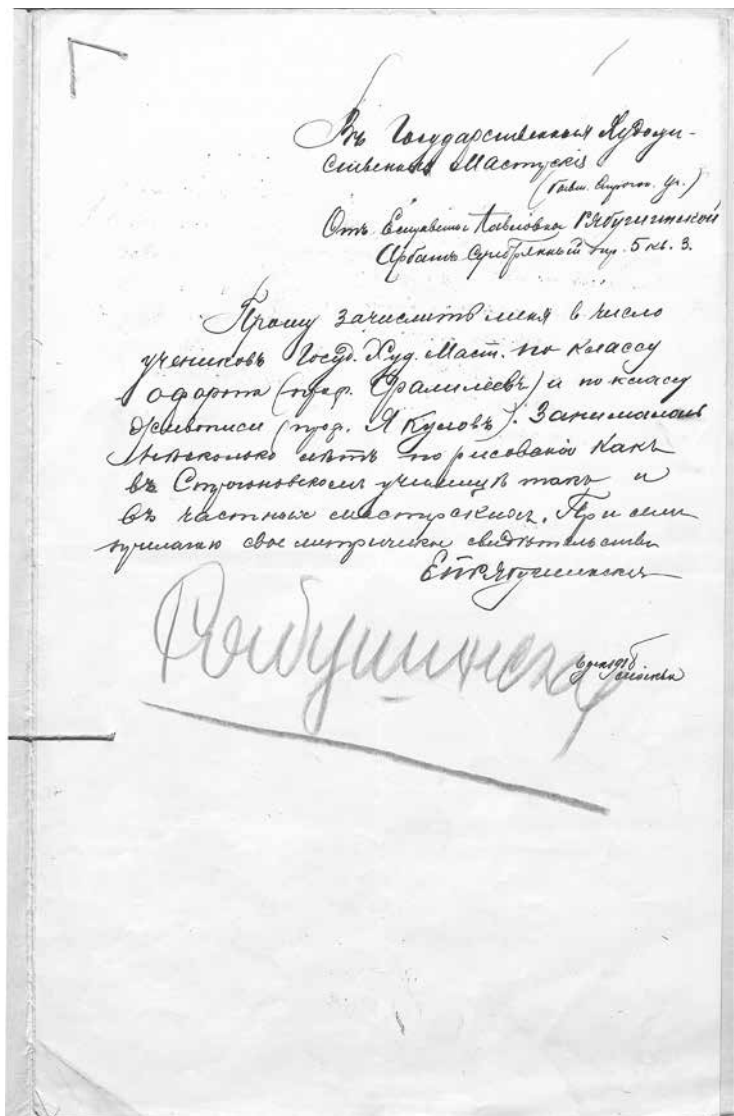 Въ Государственныя Художе-
ственныя Мастерскія
(бывш. Строгон. Уч.)
Отъ Елизаветы Павловны Рябушинской
Арбатъ Серебрянный пер. 5 кв. 3.
Прошу зачислить меня в число
учениковъ Госуд. Худ. Маст. по классу
офорта (проф. Фалилеевъ) и по классу
живописи (проф. Якуловъ). Занималась
нѣсколько лѣтъ по рисованію какъ
въ Строгоновскомъ училищѣ такъ и
въ частныхъ мастерскихъ. При семъ
прилагаю свое метрическое свидѣтельство
ЕПРябушинская
Москва
Рябушинская